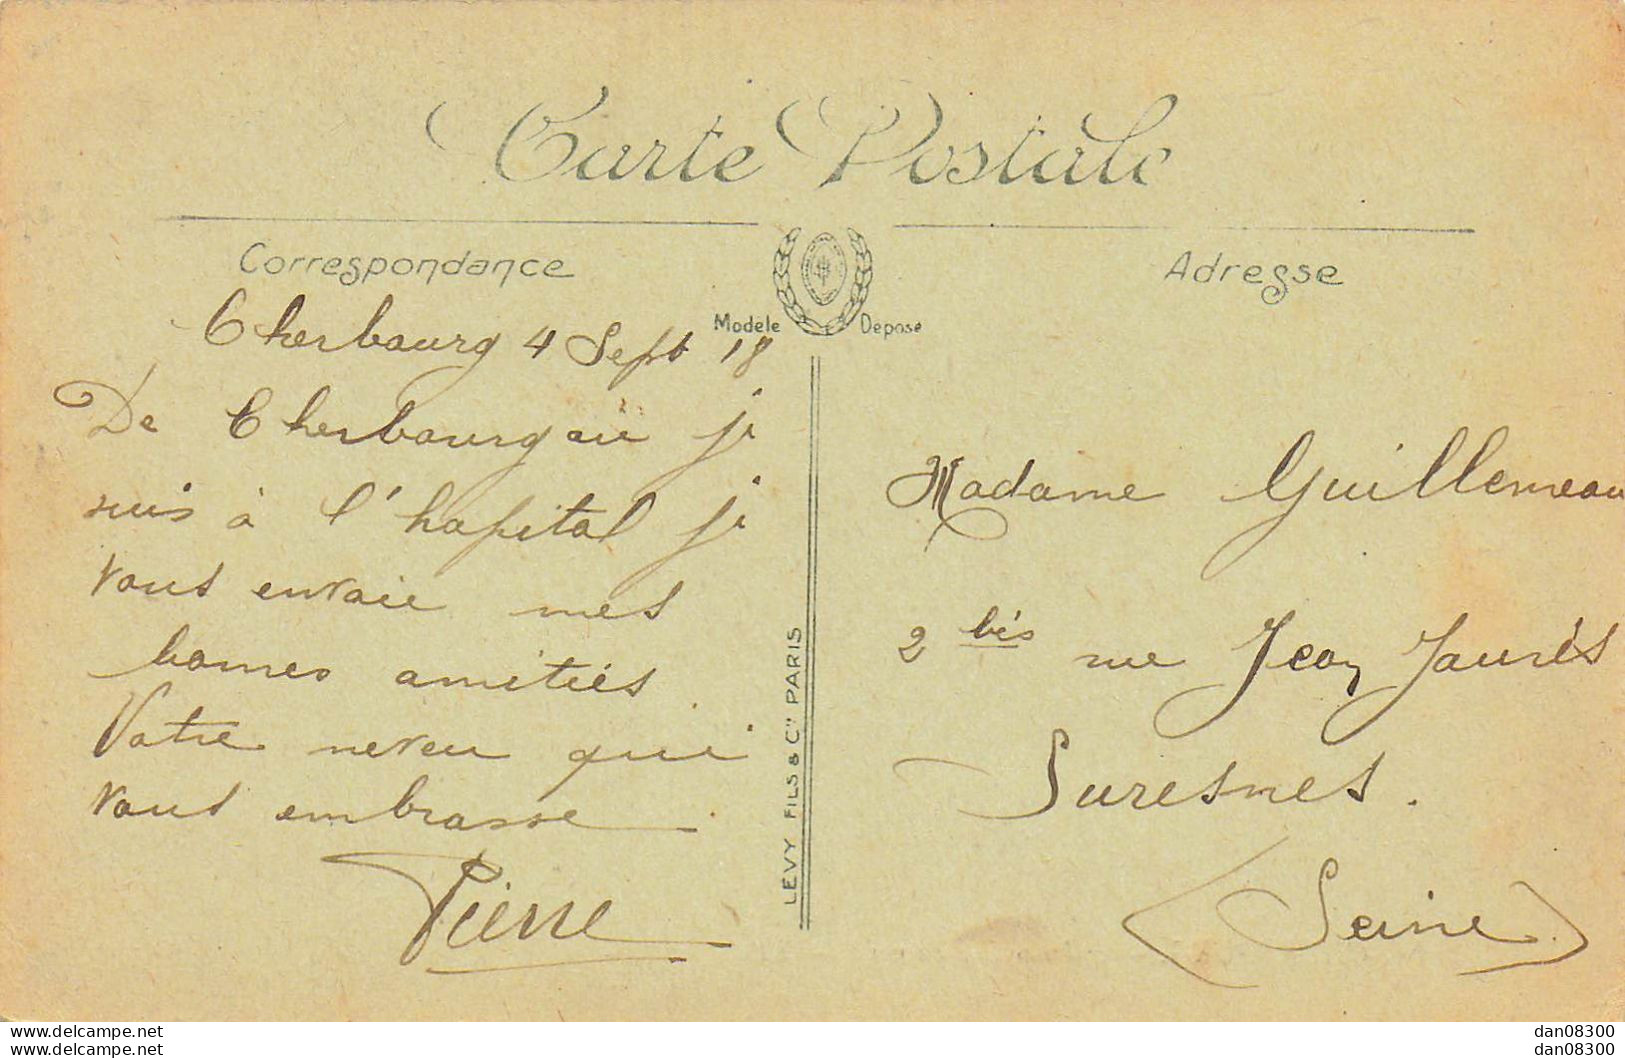 Carte Postale
Correspondance
Cherbourg 4 Sept 18
De Cherbourg où je
suis à l'hopital je
vous envoie mes
bonnes amitiés.
Votre neveu qui
vous embrasse
Pierre
Modèle Déposé
LEVY FILS & Cie PARIS
Adresse
Madame Guillemeau
2 bis rue Jean Jaurès
Suresnes.
(Seine)
www.delcampe.net
www.delcampe.net
dan08300
dan08300